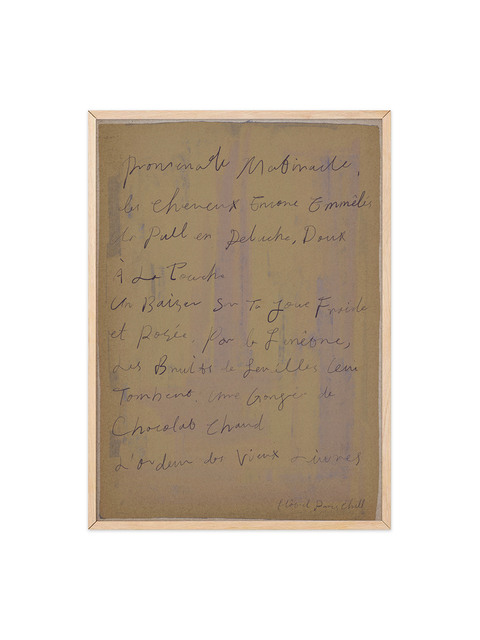 Promenade Matinale,
les Cheveux Encore Emmêlés
Pull en Peluche, Doux
À La Touche
Un Baiser Sur Ta Joue Froide
et Rosée Par la
Les Bruits de Feuilles
Tombent une Gorgée de
Chocolat Chaud
L'odeur des Vieux Livres